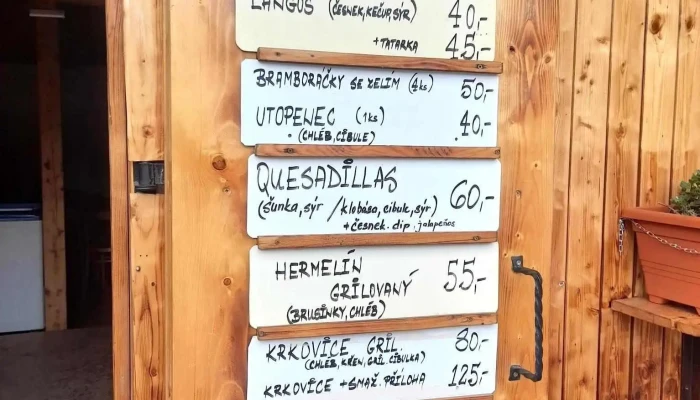 LANGOŠ (ČESNEK, KEČUP, SÝR) 40,-
+ TATARKA 45,-
BRAMBORÁČKY SE ZELÍM (4ks) 50,-
UTOPENEC (1ks) 40,-
(CHLÉB, CIBULE)
QUESADILLAS 60,-
(šunka, sýr / klobása, cibuk, sýr)
+ česnek. dip, jalapeños
HERMELÍN
GRILOVANÝ 55,-
(BRUSINKY, CHLÉB)
KRKOVICE GRIL. 80,-
(CHLÉB, KŘEN, GRIL. CIBULKA)
KRKOVICE + SMAŽ. PŘÍLOHA 125,-